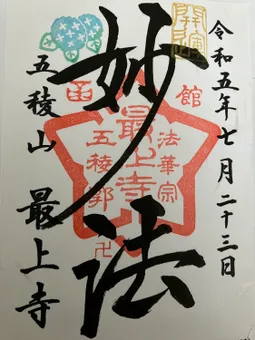 令和五年七月二十三日
妙法
五稜山 最上寺
函館
法華宗
最上寺
五稜郭
卍